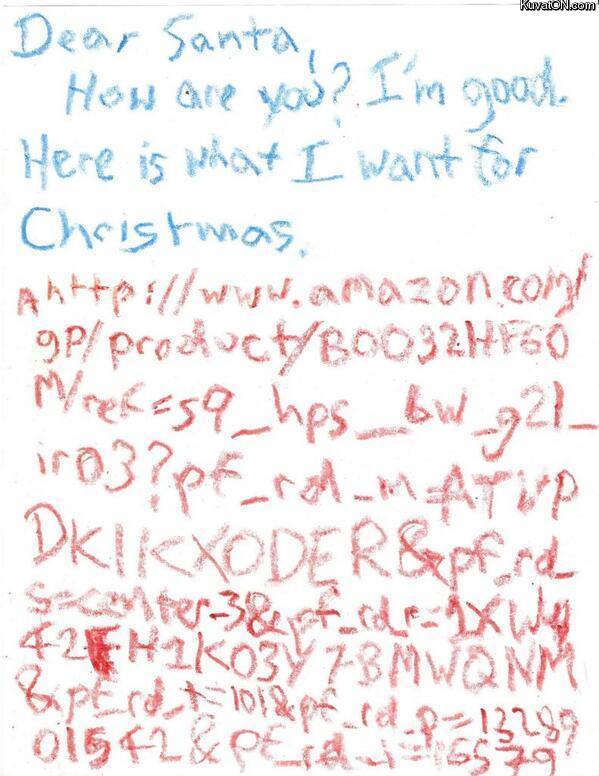 KuvatON.com
Dear Santa,
How are you? I'm good.
Here is what I want for
Christmas.
A http://www.amazon.com/
gp/product/B0032HF60
M/ref=s9_hps_bw_g21_
ir03?pf_rd_m=ATVP
DKIKX0DER&pf_rd_
s=center-3&pf_rd_r=1XW4
42FH1K03Y7BMWQNM
&pf_rd_t=101&pf_rd_p=13289
01542&pf_rd_i=16579